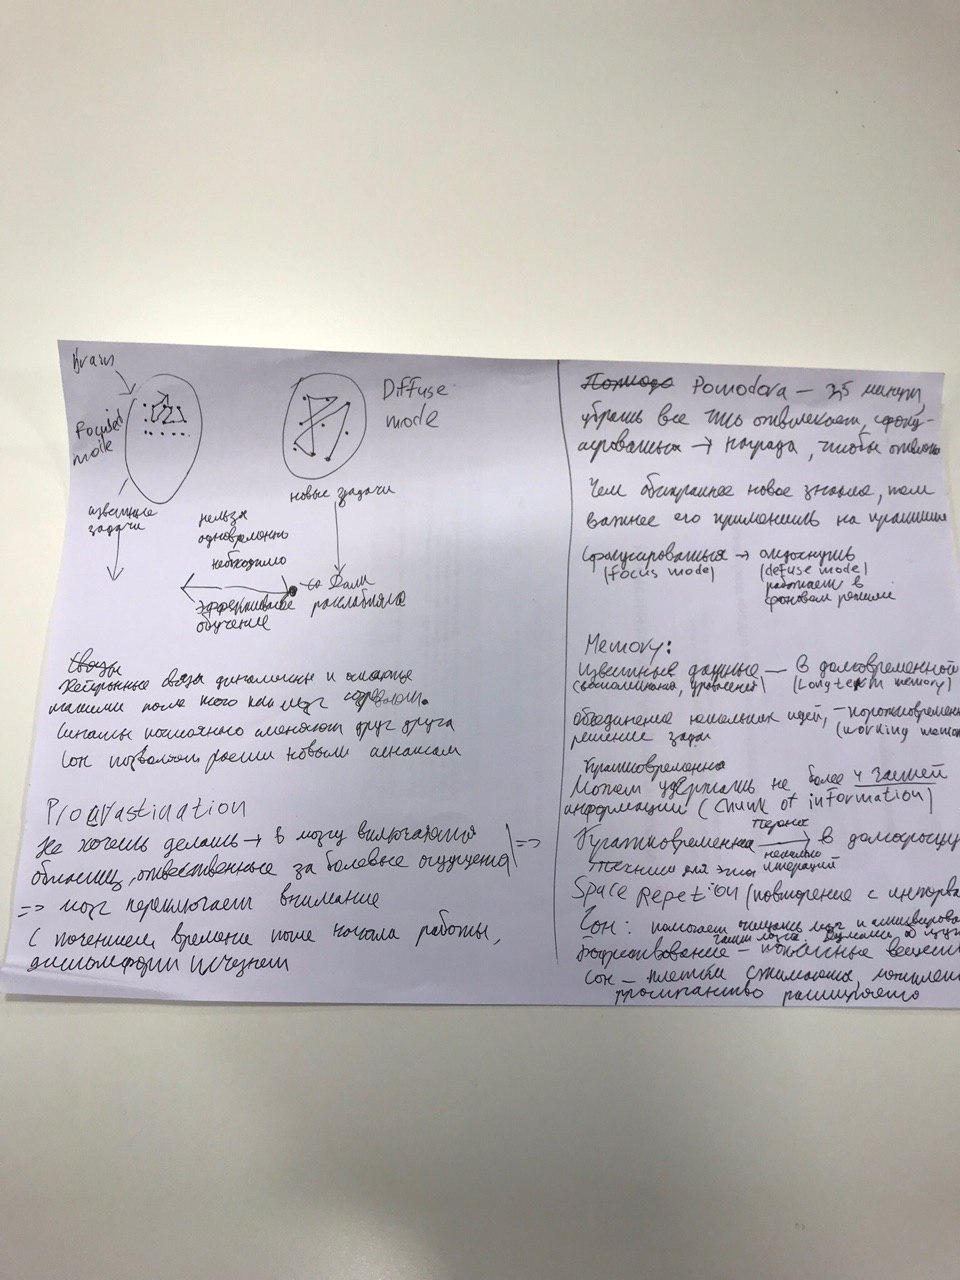 Brain
Focused
mode
Diffuse
mode
известные
задачи
новые задачи
нельзя
одновременно
необходимо
эффективное
обучение
расслабляться
Связи
Нейронные связи динамичны и остаются
такими после того как мозг
Синапсы постоянно сменяют друг друга
Сон позволяет расти новым синапсам
Procrastination
Не хочешь делать → в мозгу включаются
области, ответственные за болевые ощущения ⇒
⇒ мозг переключает внимание
С течением времени после начала работы,
дискомфорт исчезнет
Pomodora — 25 минут,
убрать все что отвлекает, сфоку-
сироваться → награда, чтобы
Чем абстрактнее новое знание, тем
важнее его применить на практике
Сфокусироваться → отдохнуть
(focus mode) (defuse mode)
работает в
фоновом режиме
Memory:
Известные данные — в долговременной
(воспоминания, уравнения) (Long term memory)
Объединение нескольких идей, —
решение задач (working
Кратковременна
Можем удержать не более 4 частей
информации (chunk of information)
Кратковременна → в
несколько
итераций
Техника для этого
Space Repetion (повторение с
Сон: помогает очищать мозг и
Бодрствование —
Сон — клетки сжимаются,
пространство расширяется